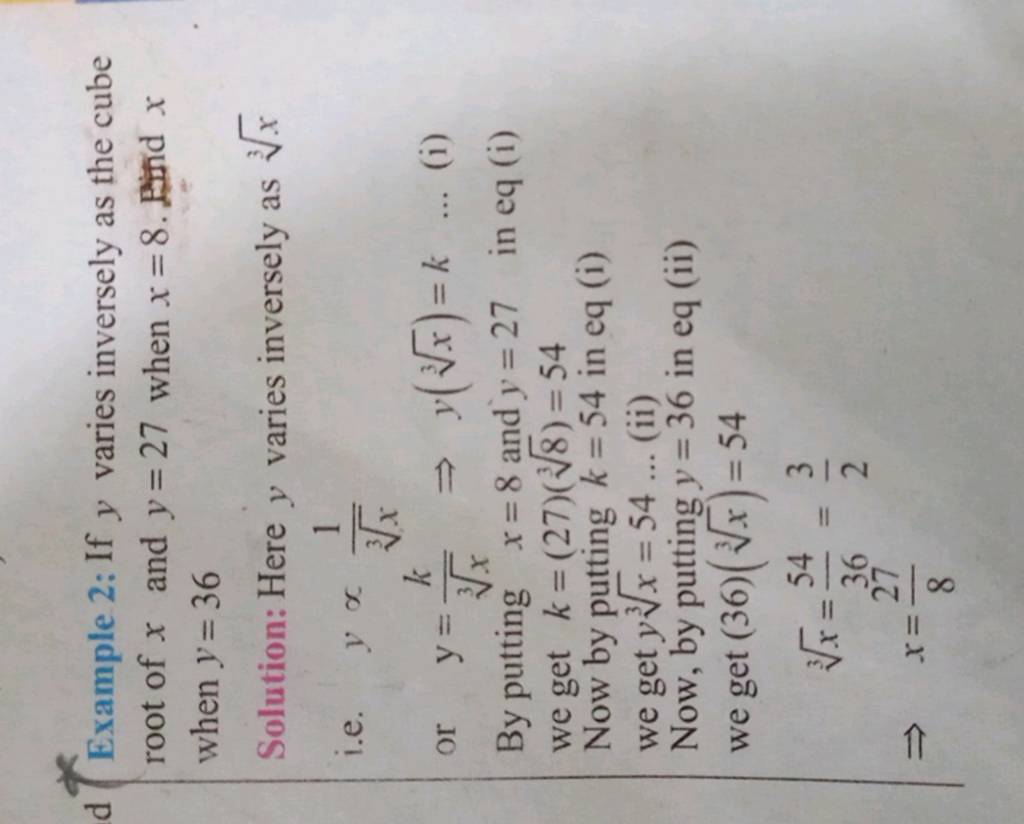 d
Example 2: If y varies inversely as the cube
root of x and y = 27 when x = 8. Find x
when y = 36
Solution: Here y varies inversely as ∛x
i.e. y ∝ 1/∛x
or y = k/∛x ⇒ y(∛x) = k ... (i)
By putting x = 8 and y = 27 in eq (i)
we get k = (27)(∛8) = 54
Now by putting k = 54 in eq (i)
we get y∛x = 54 ... (ii)
Now, by putting y = 36 in eq (ii)
we get (36)(∛x) = 54
∛x = 54/36 = 3/2
⇒ x = 27/8